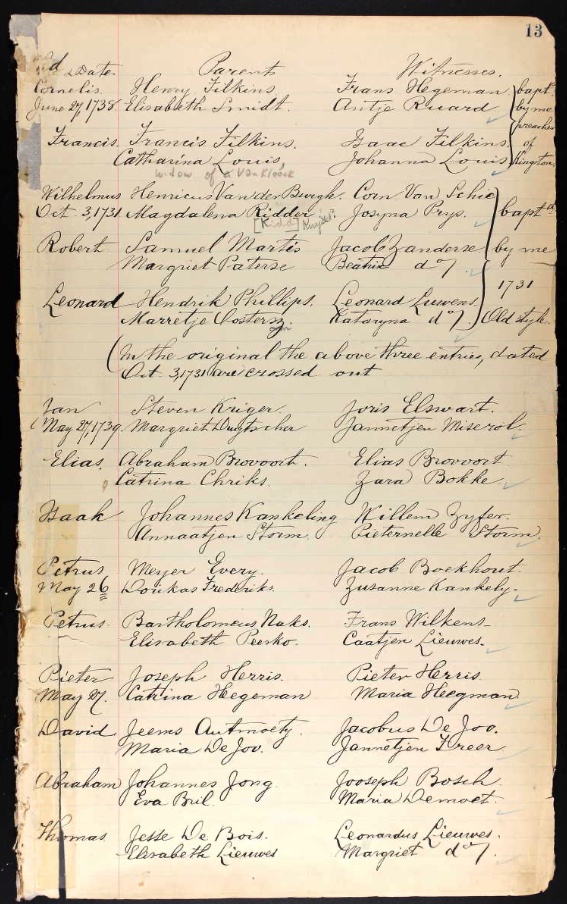 13
Date. Parents Witnesses.
Cornelis. Henry Filkins Frans Hegeman bapt.
June 27, 1738 Elisabeth Smidt. Antje Ruard by me
preacher
Francis. Francis Filkins. Isaac Filkins of
Catharina Louis, Johanna Louis Kingston
widow of a Van Kleeck
Wilhelmus Henricus Van der Burgh. Corn. Van Schie
Oct. 3, 1731 Magdalena Ridder Josyna Prys. baptd
[Kidd]
Robert Samuel Martis Jacob Zanderse by me
Margriet Paterse Beatrix do
1731
Leonard Hendrik Phillips. Leonard Luwens Old style.
Marretje Oostern Kataryna do
(In the original the above three entries, dated
Oct. 3, 1731 are crossed out
Jan Steven Kriger Joris Elswart.
May 27, 1739. Margriet Duytscher Jannetjen Miserol.
Elias. Abraham Brovoort. Elias Brovoort
Catrina Chriks. Zara Bokke
Isaak Johannes Kankeling Willem Zyfer.
Annaatjen Storm. Pieternelle Storm
Petrus Meyer Every. Jacob Bockhout.
May 26 Doukas Frederiks. Zusanne Kankely.
Petrus Bartholomeus Naks. Frans Wilkens
Elisabeth Peerko. Caatjen Lieuwes.
Pieter Joseph Herris. Pieter Herris.
May 27. Catrina Hegeman Maria Heegman
David Jeems Autmoety. Jacobus De Joo.
Maria De Joo. Jannetjen Freer
Abraham Johannes Jong Jooseph Bosch.
Eva Bril Maria Demoet.
Thomas Jesse De Bois. Leonardus Lieuwes.
Elisabeth Lieuwes Margriet do